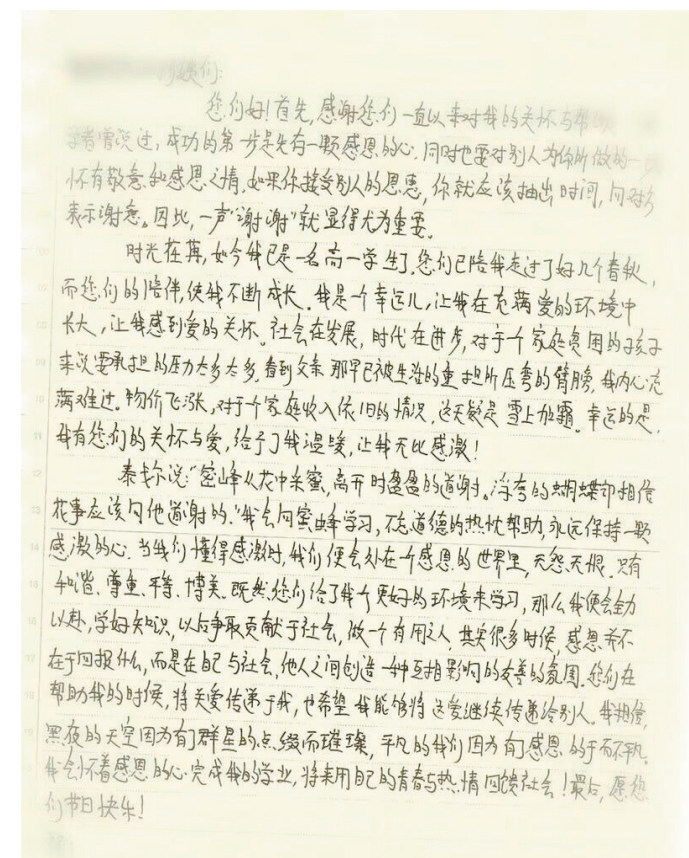 们:
您们好!首先,感谢您们一直以来对我的关怀与帮
者曾说过,成功的第一步是先有一颗感恩的心.同时也要对别人为你所做的一
怀有敬意和感恩之情.如果你接受别人的恩惠,你就应该抽出时间,向对方
表示谢意。因此,一声“谢谢”就显得尤为重要。
时光荏苒,如今我已是一名高一学生了.您们已陪我走过了好几个春秋,
而您们的陪伴,使我不断成长.我是一个幸运儿,让我在充满爱的环境中
长大,让我感到爱的关怀.社会在发展,时代在进步,对于个家庭贫困的孩子
来说要承担的压力太多太多.看到父亲那早已被生活的重担所压弯的臂膀,我内心充
满难过.物价飞涨,对于个家庭收入依旧的情况,这无疑是雪上加霜。幸运的是,
我有您们的关怀与爱,给予了我温暖,让我无比感激!
泰戈尔说:“蜜蜂从花中采蜜,离开时盈盈的道谢。浮夸的蝴蝶却相信
花事应该向他道谢的.”我会向蜜蜂学习,不忘道德的热忱帮助,永远保持一颗
感激的心.当我们懂得感激时,我们便会处在一个感恩的世界里,无怨无恨.只有
和谐、尊重、平等、博美.既然您们给了我个更好的环境来学习,那么我便会全力
以赴,学好知识,以后争取贡献于社会,做一个有用之人.其实很多时候,感恩并不
在于回报什么,而是在自己与社会,他人之间创造一种互相影响的友善的氛围.您们在
帮助我的时候,将关爱传递于我,也希望我能够将这爱继续传递给别人.我相信,
黑夜的天空因为有了群星的点缀而璀璨,平凡的我们因为有了感恩的于而不凡.
我会怀着感恩的心完成我的学业,将来用自己的青春与热情回馈社会!最后,愿您
们节日快乐!